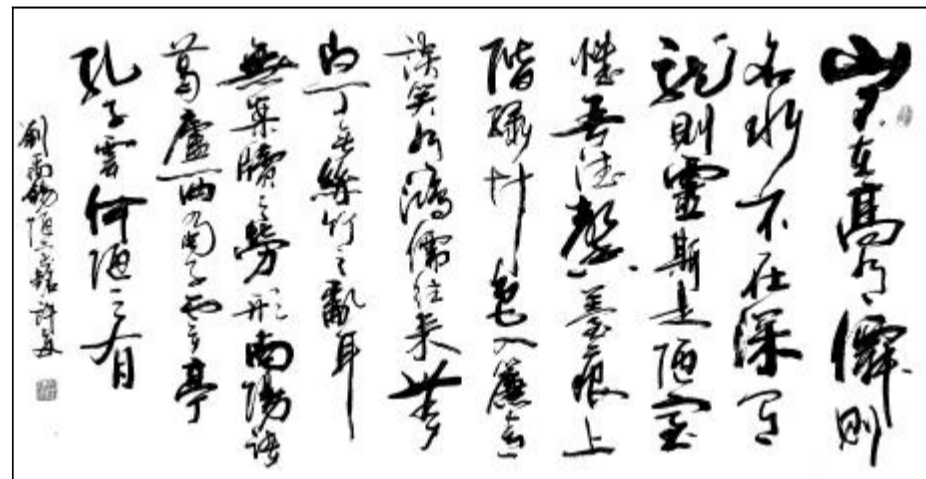 山不在高有僊則
名水不在深有
龍則靈斯是陋室
惟吾德馨苔痕上
階綠草色入簾青
談笑有鴻儒往来無
白丁無絲竹之亂耳
無案牘之勞形南陽諸
葛廬西蜀子雲亭
孔子雲何陋之有
劉禹錫陋室銘許